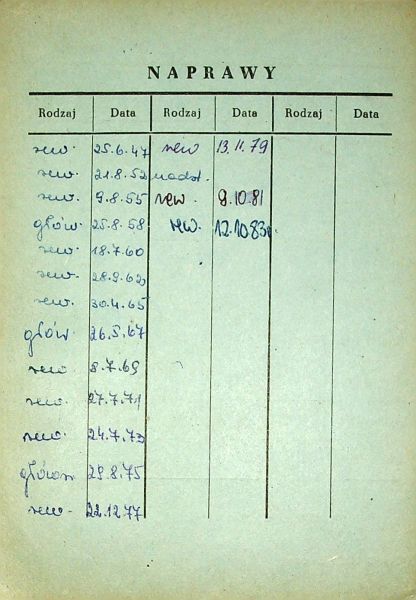 NAPRAWY
Rodzaj Data Rodzaj Data Rodzaj Data
rew. 25.6.47 rew 13.11.79
rew. 21.8.52 nadst.
rew. 9.8.55 rew. 9.10.81
głów. 25.8.58 rew. 12.10.83
rew. 18.7.60
rew. 28.9.62
rew. 30.4.65
głów. 26.5.67
rew 8.7.69
rew. 27.7.71
rew. 24.7.73
główn 29.8.75
rew. 22.12.77